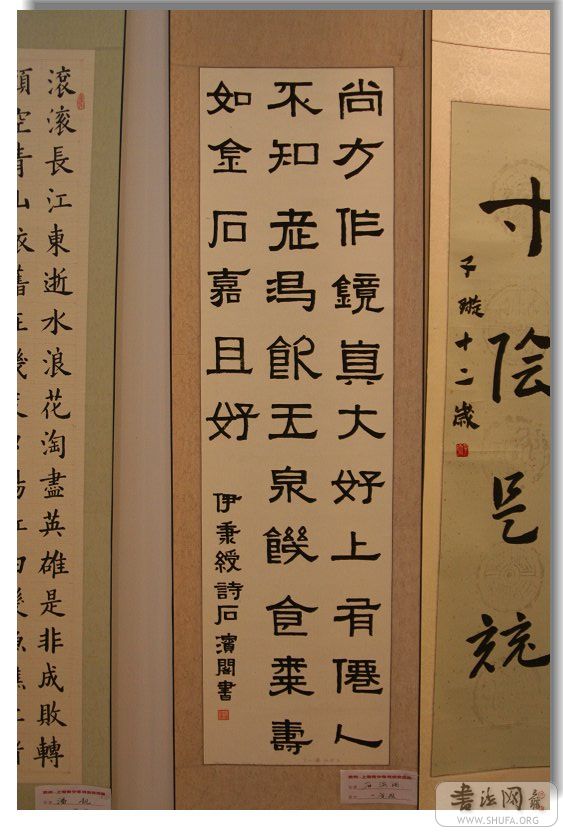 寸陰是競
子璇十二歲
尚方作鏡真大好上有僊人
不知老渴飲玉泉饑食棗壽
如金石嘉且好
伊秉綬詩石濱閣書
滾滾長江東逝水浪花淘盡英雄是非成敗轉
頭空青山依舊在幾
書法网
WWW.SHUFA.ORG